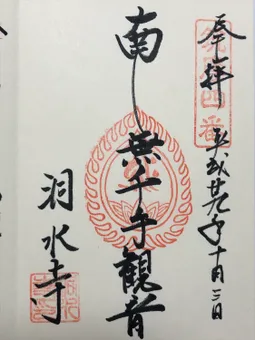 奉拝
平成廿九年十月三日
四番
南無千手観音
洞水寺